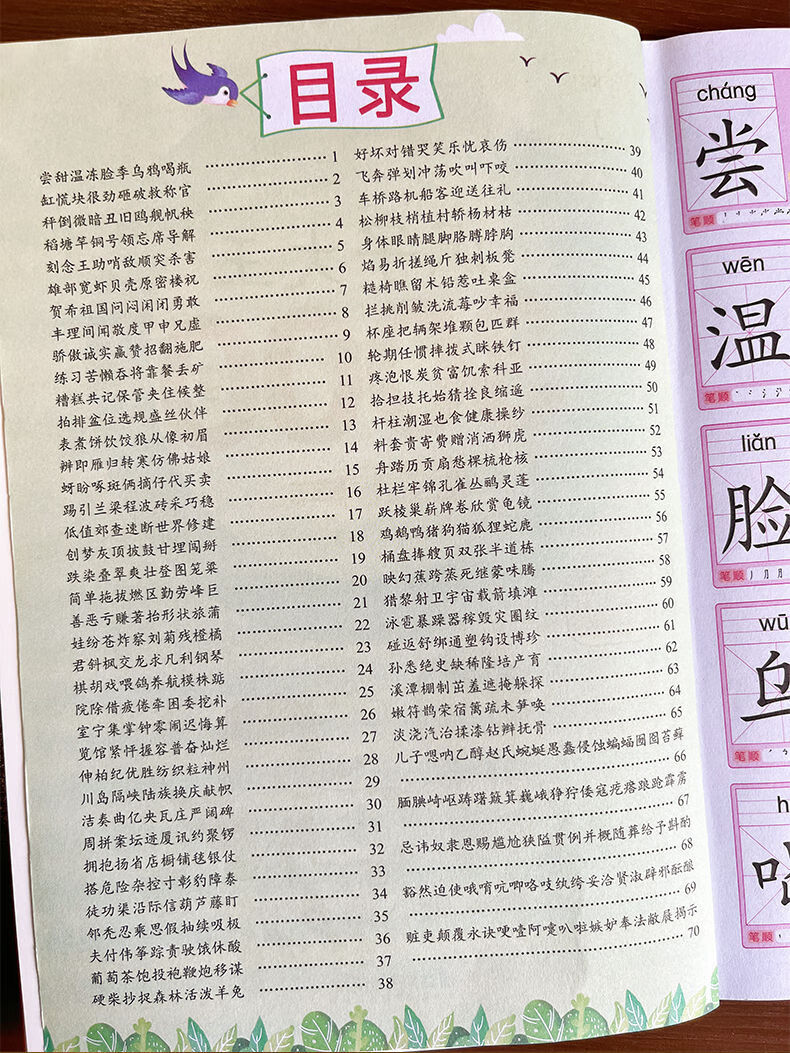 目录
尝甜温冻脸季乌鸦喝瓶 1
缸慌块很劲砸破救称官 2
秤倒微暗丑旧鸥舰帆秧 3
稻塘竿铜号领忘席导解 4
刻念王助哨敌顺突杀害 5
雄部宽虾贝壳原密楼祝 6
贺希祖国问闷闲闭勇敢 7
丰理间闻敬度甲申兄虚 8
骄傲诚实赢赞招翻施肥 9
练习苦懒吞将靠餐丢矿 10
糟糕共记保管夹住候整 11
拍排盆位选规盛丝伙伴 12
表煮饼饮饺狼从像初眉 13
辨即雁归转寒仿佛姑娘 14
蚜盼啄斑俩摘仔代买卖 15
踢引兰梁程波砖采巧稳 16
低值郊查速断世界修建 17
创梦灰顶披鼓甘埋闯掰 18
跌染叠翠爽壮登图笼粱 19
简单拖拔燃区勤劳峰巨 20
善恶亏赚著抬形状旅蒲 21
娃纷苍炸察刘菊残橙橘 22
君斜枫交龙求凡利钢琴 23
棋胡戏喂鸽养航模株踮 24
院除借疲倦牵困委挖补 25
室宁集掌钟零闹迟悔算 26
览馆紧怀握容普奋灿烂 27
伸柏纪优胜纺织粒神州 28
川岛隔峡陆族换庆献帜 29
洁奏曲亿央瓦庄严阔碑 30
周拼案坛迹厦讯约聚锣 31
拥抱扬省店橱铺毯银仗 32
搭危险杂控寸彰豹障泰 33
徒功渠沿际信葫芦藤盯 34
邻秃忍乘思假抽续吸极 35
夫付伟筝踪责驶饿休酸 36
葡萄茶饱投袍鞭炮移谋 37
硬柴抄捉森林活泼羊兔 38
好坏对错哭笑乐忧哀伤 39
飞奔弹划冲荡吹叫吓咬 40
车桥路机船客迎送往礼 41
松柳枝梢植村轿杨材枯 42
身体眼睛腿脚胳膊脖胸 43
焰易折搓绳斤独刺板凳 44
糙椅瞧留术铅惹吐桌盒 45
拦挑削皱洗流莓吵幸福 46
杯座把辆架堆颗包匹群 47
轮期任惯摔拨式眯铁钉 48
疼泡恨炭贫富饥索科亚 49
拾担技托始猜拴良缩遥 50
杆柱潮湿也食健康操纱 51
料套贵寄费赠消洒狮虎 52
舟踏历贡扇愁棵梳枪核 53
杜栏牢锦孔雀丛鹂灵蓬 54
跃棱巢崭牌卷欣赏龟镜 55
鸡鹅鸭猪狗猫狐狸蛇鹿 56
桶盘捧艘页双张半道栋 57
映幻蕉跨蒸死继蒙味腾 58
猎黎射卫宇宙载箭填滩 59
泳雹暴躁器稼毁灾圈纹 60
碰返舒绑通塑钩设博珍 61
孙悉绝史缺稀隆培产育 62
溪潭棚制茁羞遮掩躲探 63
嫩符鹊荣宿篱疏未笋唤 64
淡浇汽治揉漆钻辫抚骨 65
儿子嗯呐乙醇赵氏蜿蜒愚蠢侵蚀蝙蝠囫囵苔藓
66
腼腆崎岖踌躇簸箕巍峨狰狞倭寇疙瘩踉跄霹雳
67
忌讳奴隶恩赐尴尬狭隘贯例并概随葬给予斟酌
68
豁然迫使哦唷吭唧咯吱纨绔妥洽贤淑辟邪酝酿
69
赃吏颠覆永诀哽噎阿嚏叭啦嫉妒奉法敞展揭示
70
cháng
尝
笔顺
wēn
温
笔顺
liǎn
脸
笔顺
笔顺
笔顺